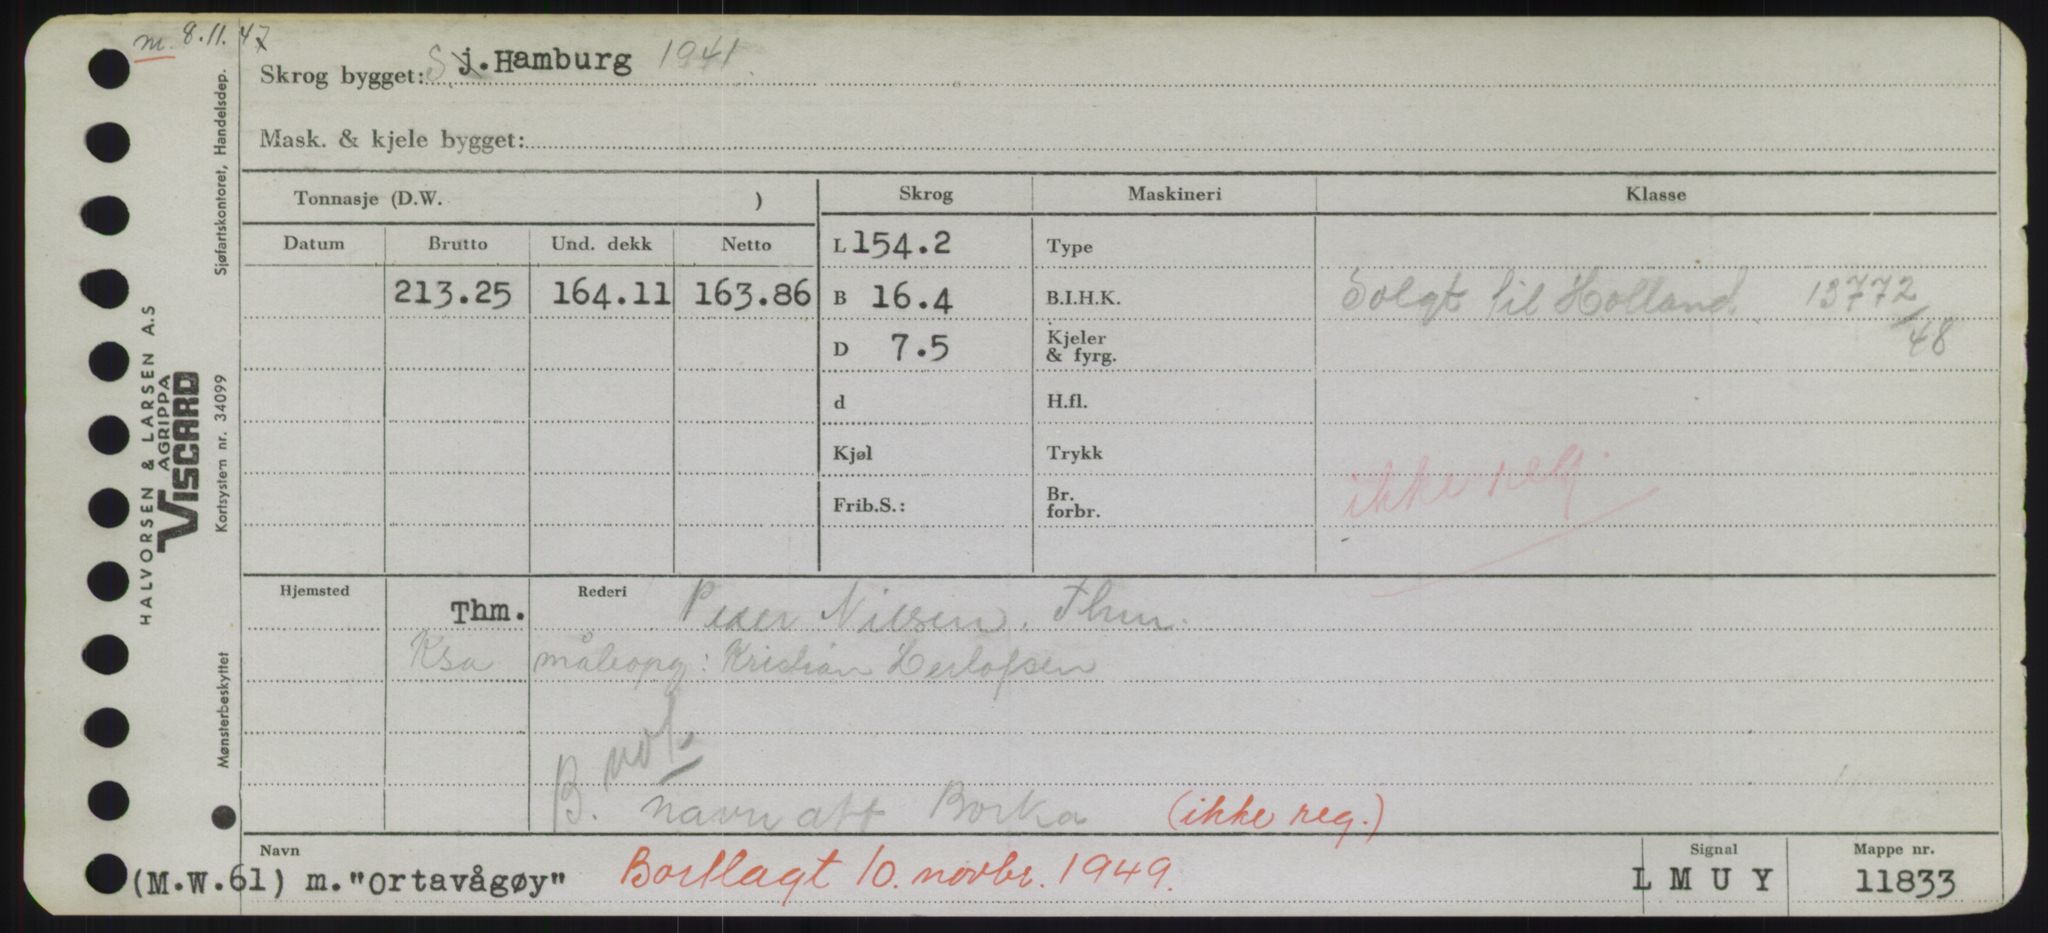 m. 8.11.47
Skrog bygget: Sj. Hamburg 1941
Mask. & kjele bygget:
Tonnasje (D.W. )
Skrog
Maskineri
Klasse
Datum
Brutto
Und. dekk
Netto
213.25
164.11
163.86
L 154.2
B 16.4
D 7.5
d
Kjøl
Frib.S.:
Type
B.I.H.K.
Kjeler
& fyrg.
H.fl.
Trykk
Br.
forbr.
Solgt til Holland. 13772/48
ikke
Hjemsted
Thm.
Rederi
Peder Nilsen. Thm.
Ksa måleopg: Kristian Herlofsen
B. navn att Borka (ikke reg.)
Navn
(M.W.61) m."Ortavågøy" Bortlagt 10. novbr. 1949.
Signal
L M U Y
Mappe nr.
11833
HALVORSEN & LARSEN A.S
AGRIPPA
VISCARD
Sjøfartskontoret, Handelsdep.
Kortsystem nr. 34099
Mønsterbeskyttet